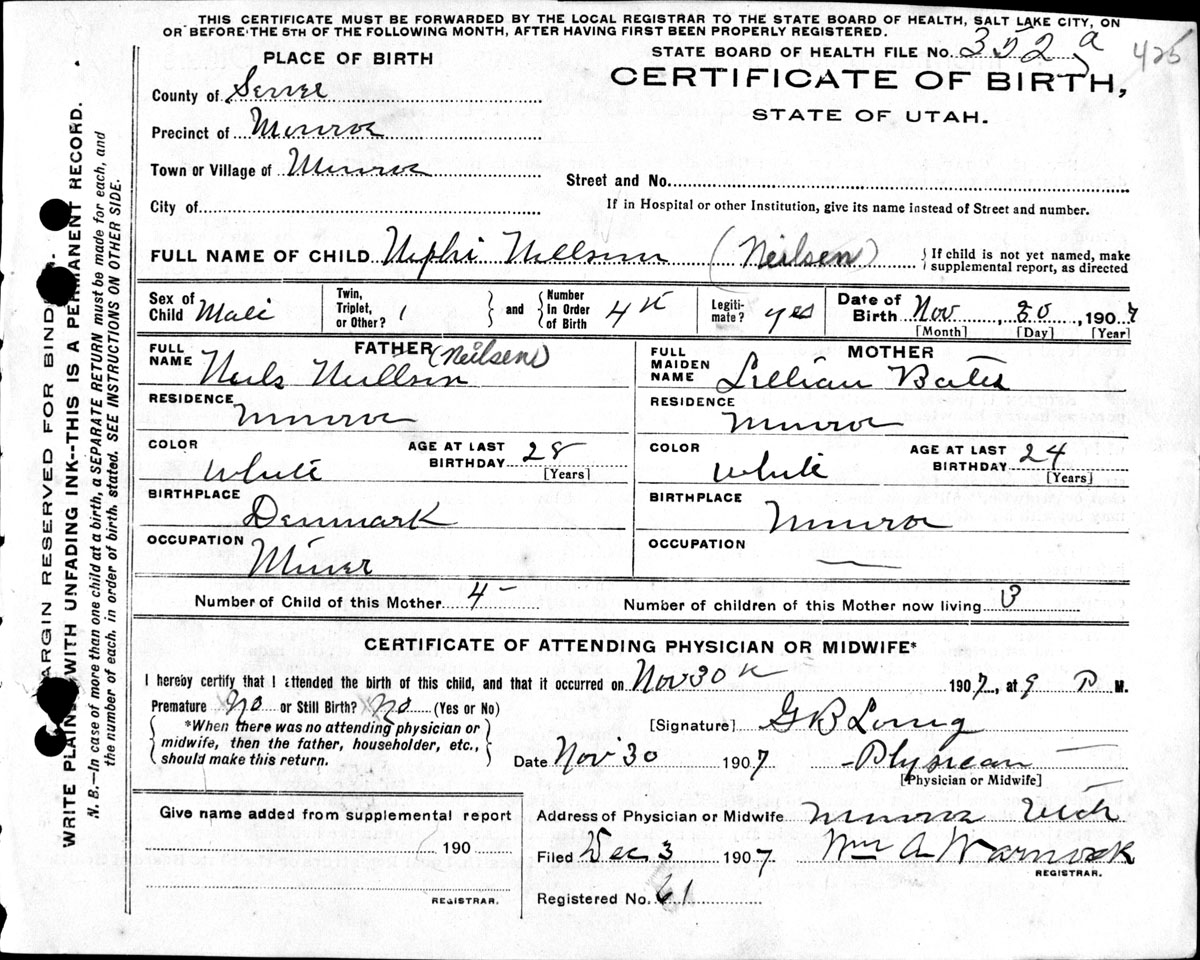 THIS CERTIFICATE MUST BE FORWARDED BY THE LOCAL REGISTRAR TO THE STATE BOARD OF HEALTH, SALT LAKE CITY, ON
OR BEFORE THE 5TH OF THE FOLLOWING MONTH, AFTER HAVING FIRST BEEN PROPERLY REGISTERED.
PLACE OF BIRTH
STATE BOARD OF HEALTH FILE No. 352 a 425
CERTIFICATE OF BIRTH,
STATE OF UTAH.
County of Sevier
Precinct of Monroe
Town or Village of Monroe
Street and No.
City of
If in Hospital or other Institution, give its name instead of Street and number.
FULL NAME OF CHILD Nephi Neilson (Neilsen) If child is not yet named, make
supplemental report, as directed
Sex of Child Male Twin, Triplet, or Other? 1 and Number In Order of Birth 4th Legitimate? yes Date of Birth Nov 20, 1907
[Month] [Day] [Year]
FULL NAME FATHER (Neilsen) FULL MAIDEN NAME MOTHER
Neils Neilson Lillian Bates
RESIDENCE Monroe RESIDENCE Monroe
COLOR White AGE AT LAST BIRTHDAY 28 [Years] COLOR White AGE AT LAST BIRTHDAY 24 [Years]
BIRTHPLACE Denmark BIRTHPLACE Monroe
OCCUPATION Miner OCCUPATION —
Number of Child of this Mother 4 Number of children of this Mother now living 3
CERTIFICATE OF ATTENDING PHYSICIAN OR MIDWIFE*
I hereby certify that I attended the birth of this child, and that it occurred on Nov 30th 1907, at 9 P M.
Premature No or Still Birth? No (Yes or No)
*When there was no attending physician or
midwife, then the father, householder, etc.,
should make this return.
[Signature] G B Long
Date Nov 30 1907 Physican
[Physician or Midwife]
Give name added from supplemental report
190
REGISTRAR.
Address of Physician or Midwife Monroe Utah
Filed Dec 3 1907 Wm A Warnock
REGISTRAR.
Registered No. 61
MARGIN RESERVED FOR BINDING
WRITE PLAINLY WITH UNFADING INK--THIS IS A PERMANENT RECORD.
N. B.—In case of more than one child at a birth, a SEPARATE RETURN must be made for each, and
the number of each, in order of birth, stated. SEE INSTRUCTIONS ON OTHER SIDE.